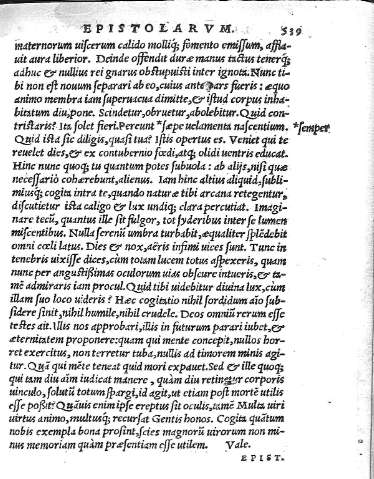 EPISTOLARVM. 539
maternorum uiscerum calido molliq; fomento emissum, affla-
uit aura liberior. Deinde offendit duræ manus tactus tenerq;
adhuc & nullius rei gnarus obstupuisti inter ignota. Nunc ti-
bi non est nouum separari ab eo, cuius ante pars fueris: æquo
animo membra iam superuacua dimitte, & istud corpus inha-
bitatum diu, pone. Scindetur, obruetur, abolebitur. Quid con-
tristaris? Ita solet fieri. Pereunt *sæpe uelamenta nascentium. *semper
Quid ista sic diligis, quasi tua? Istis opertus es. Veniet qui te
reuelet dies, & ex contubernio fœdi, atq; olidi uentris educat.
Hinc nunc quoq; tu quantum potes subuola: ab alijs, nisi quæ
necessariò cohærebunt, alienus. Iam hinc altius aliquid, subli-
miusq; cogita intra te, quando naturæ tibi arcana retegentur,
discutietur ista caligo & lux undiq; clara percutiat. Imagi-
nare tecū, quantus ille sit fulgor, tot syderibus inter se lumen
miscentibus. Nulla serenū umbra turbabit, æqualiter splēdebit
omni cœli latus. Dies & nox, aëris infimi uices sunt. Tunc in
tenebris uixisse dices, cùm totam lucem totus aspexeris, quam
nunc per angustißimas oculorum uias obscure intueris, & ta-
mē admiraris iam procul. Quid tibi uidebitur diuina lux, cum
illam suo loco uideris? Hæc cogitatio nihil sordidum aīo sub-
sidere sinit, nihil humile, nihil crudele. Deos omniū rerum esse
testes ait. Illis nos approbari, illis in futurum parari iubet, &
æternitatem proponere: quam qui mente concepit, nullos hor-
ret exercitus, non terretur tuba, nullis ad timorem minis agi-
tur. Quā qui mēte teneat quid mori expauet. Sed & ille quoq;
qui tam diu aīm iudicat manere, quàm diu retinetur corporis
uinculo, solutū totum spargi, id agit, ut etiam post mortē utilis
esse poßit. Quāuis enim ipse ereptus sit oculis, tamē Multa uiri
uirtus animo, multusq; recursat Gentis honos. Cogita quātum
nobis exempla bona prosint, scies magnorū uirorum non mi-
nus memoriam quàm præsentiam esse utilem. Vale.
EPIST.